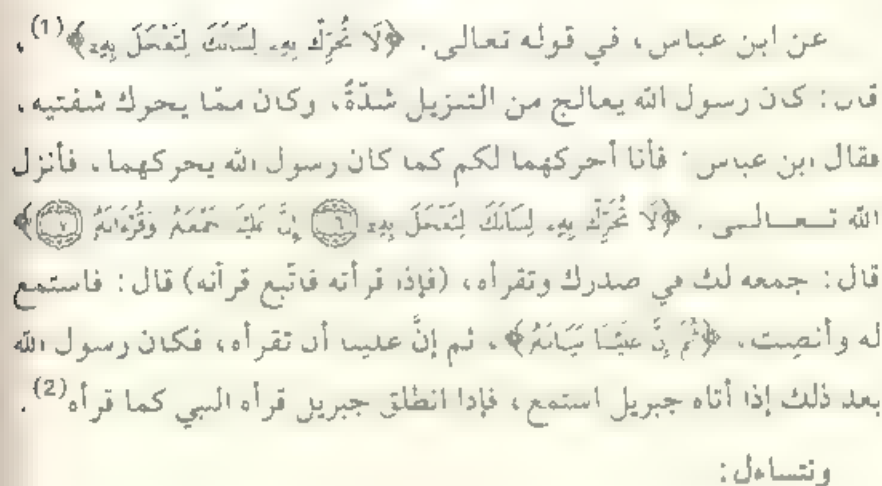 عن ابن عباس، في قوله تعالى. ﴿لَا تُحَرِّكْ بِهِ لِسَانَكَ لِتَعْجَلَ بِهِ﴾(1)،
قال: كان رسول الله يعالج من التنزيل شدّةً، وكان ممّا يحرك شفتيه،
فقال ابن عباس: فأنا أحركهما لكم كما كان رسول الله يحركهما، فأنزل
الله تعالى. ﴿لَا تُحَرِّكْ بِهِ لِسَانَكَ لِتَعْجَلَ بِهِ (١٦) إِنَّ عَلَيْنَا جَمْعَهُ وَقُرْآنَهُ (١٧)﴾
قال: جمعه لك في صدرك وتقرأه، (فإذا قرأته فاتّبع قرآنه) قال: فاستمع
له وأنصِت. ﴿ثُمَّ إِنَّ عَلَيْنَا بَيَانَهُ﴾، ثم إنَّ علينا أن تقرأه، فكان رسول الله
بعد ذلك إذا أتاه جبريل استمع، فإذا انطلق جبريل قرأه النبي كما قرأه(2).
ونتساءل: